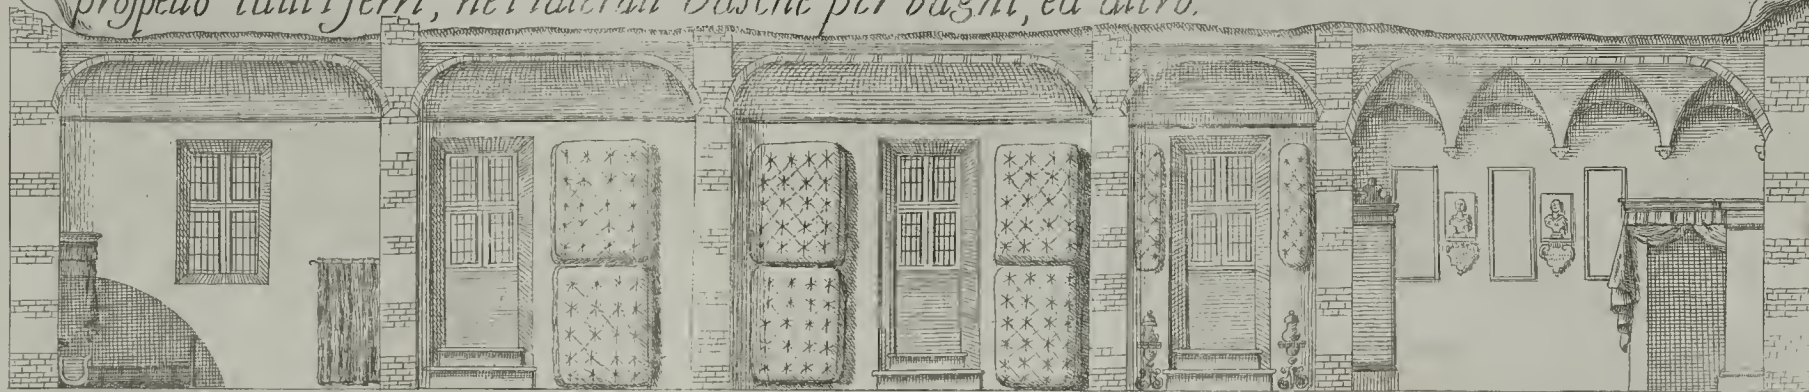 prospetto tutti i ferri, nei laterali Vasche per bagni, ed altro.